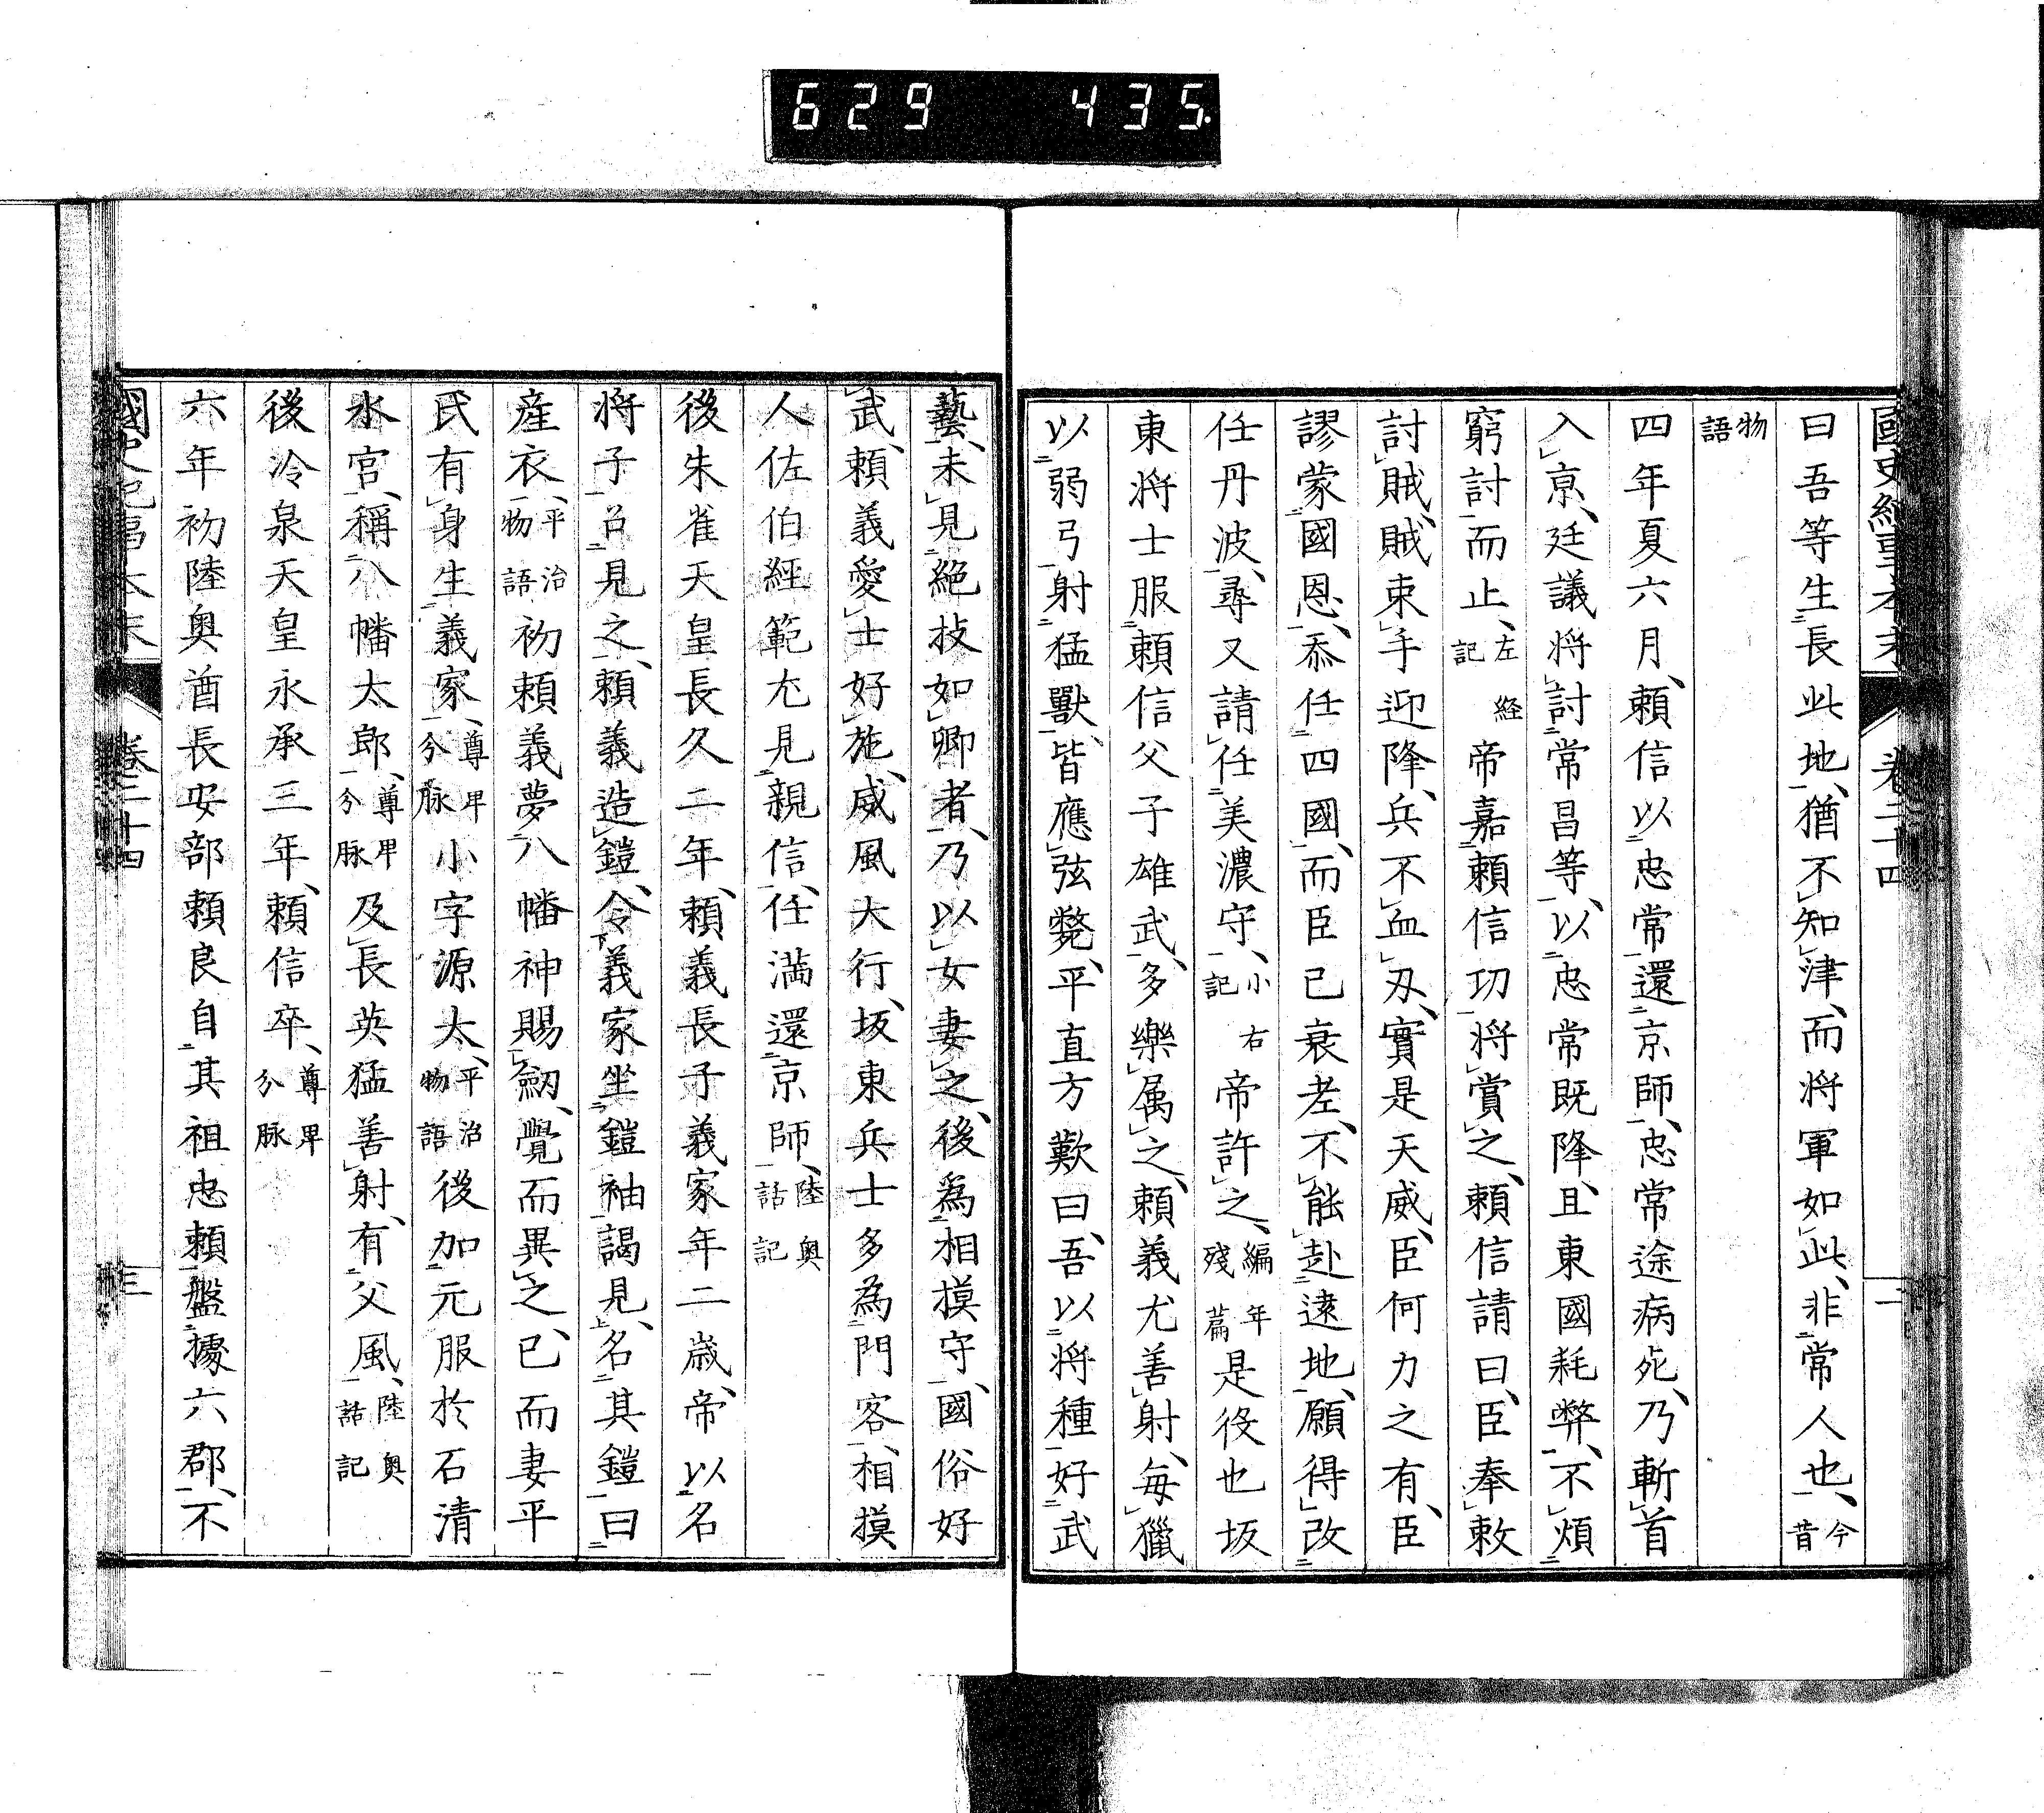 629 435
曰吾等生長此地、猶不知津、而將軍如此、非常人也、今昔
物語
四年夏六月、賴信以忠常還京師、忠常途病死、乃斬首
入京、廷議将討常昌等、以忠常既降、且東國耗弊、不煩
窮討而止、左経記帝嘉賴信功将賞之、賴信請曰、臣奉敕
討賊、賊束手迎降、兵不血刃、實是天威、臣何力之有、臣
謬蒙國恩、忝任四國、而臣已衰老、不能赴遠地、願得改
任丹波、尋又請任美濃守、小右記帝許之、編年殘篇是役也坂
東将士服賴信父子雄武、多樂属之、賴義尤善射、毎獵
以弱弓射猛獸、皆應弦斃、平直方歎曰、吾以将種好武
藝、未見絶技如卿者、乃以女妻之、後爲相摸守、國俗好
武、賴義愛士好施、威風大行、坂東兵士多為門客、相摸
人佐伯經範尤見親信、任満還京師、陸奥話記
後朱雀天皇長久二年、賴義長子義家年二歳、帝以名
将子召見之、賴義造鎧、令義家坐鎧袖謁見、名其鎧曰
産衣、平治物語初賴義夢八幡神賜劒、覺而異之、已而妻平
氏有身生義家、尊卑分脉小字源太、平治物語後加元服於石清
水宮、稱八幡太郎、尊卑分脉及長英猛善射、有父風、陸奥話記
後冷泉天皇永承三年、賴信卒、尊卑分脉
六年初陸奥酋長安部賴良自其祖忠賴盤據六郡、不
國史紀事本末 卷二十四 三